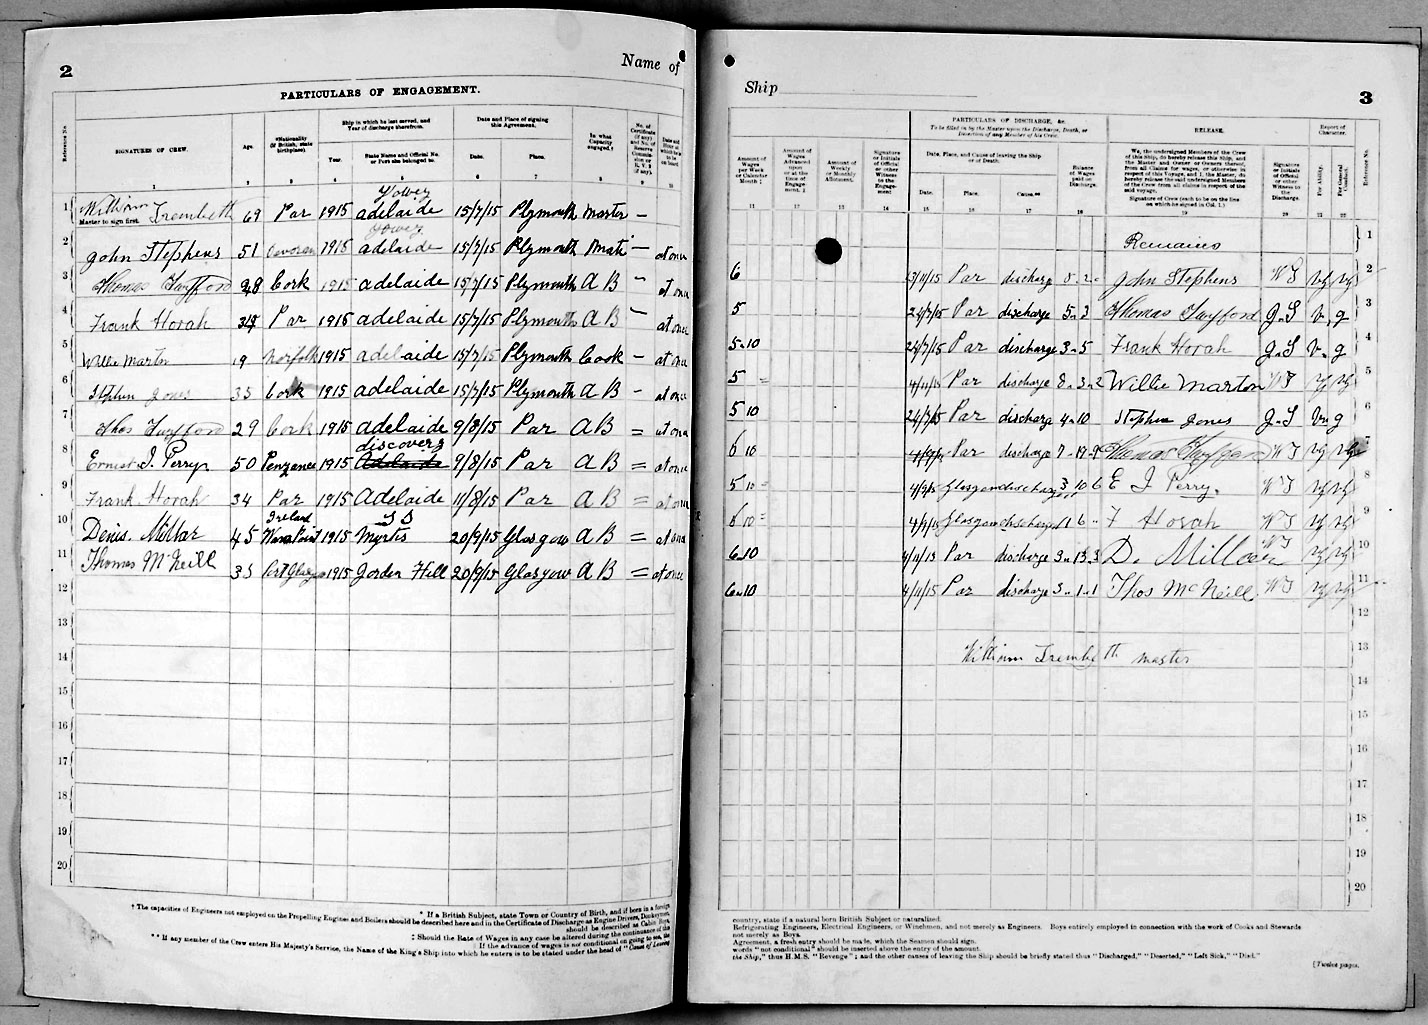 2
Name of
PARTICULARS OF ENGAGEMENT.
Reference No.
SIGNATURES OF CREW.
Age.
*Nationality (If British, state birthplace).
Ship in which he last served, and Year of discharge therefrom.
Year.
State Name and Official No. or Port she belonged to.
Date and Place of signing this Agreement.
Date.
Place.
In what Capacity engaged.†
No. of Certificate (if any) and No. of Reserve Commission or R.V.2 (if any).
1 2 3 4 5 6 7 8 9 10
1 William Trembeth 69 Par 1915 Fowey adelaide 15/7/15 Plymouth Master –
Master to sign first.
2 John Stephens 51 1915 Fowey adelaide 15/7/15 Plymouth Mate – at once
3 Thomas Twyfford 28 Cork 1915 adelaide 15/7/15 Plymouth A B – at once
4 Frank Horah 34 Par 1915 adelaide 15/7/15 Plymouth A B – at once
5 Willie Marton 19 Norfolk 1915 adelaide 15/7/15 Plymouth Cook – at once
6 Stephen Jones 35 Cork 1915 adelaide 15/7/15 Plymouth A B – at once
7 Thos Twyfford 29 Cork 1915 adelaide 9/8/15 Par A B = at once
8 Ernest J. Perry 50 Penzance 1915 discovery Adelaide 9/8/15 Par A B = at once
9 Frank Horah 34 Par 1915 Adelaide 11/8/15 Par A B = at once
10 Denis. Millar 45 Ireland 1915 S S Myrtis 20/9/15 Glasgow A B = at once
11 Thomas McNeill 35 Port Glasgow 1915 Jorden Hill 20/9/15 Glasgow A B = at once
12
13
14
15
16
17
18
19
20
† The capacities of Engineers not employed on the Propelling Engines and Boilers should be described here and in the Certificate of Discharge as Engine Drivers, Donkeymen,
* If a British Subject, state Town or Country of Birth, and if born in a foreign
should be described as Cabin Boys,
‡ Should the Rate of Wages in any case be altered during the continuance of this
If the advance of wages is not conditional on going to sea, the
** If any member of the Crew enters His Majesty's Service, the Name of the King's Ship into which he enters is to be stated under the head of "Cause of Leaving
Ship
3
Amount of Wages per Week or Calendar Month ‡
Amount of Wages Advanced upon or at the time of Engagement. ‡
Amount of Weekly or Monthly Allotment.
Signature or Initials of Official or other Witness to the Engagement
PARTICULARS OF DISCHARGE, &c.
To be filled in by the Master upon the Discharge, Death, or Desertion of any Member of his Crew.
Date, Place, and Cause of leaving the Ship or of Death.
Date.
Place.
Cause.**
Balance of Wages paid on Discharge.
RELEASE.
We, the undersigned Members of the Crew of this Ship, do hereby release this Ship, and the Master and Owner or Owners thereof, from all Claims for wages, or otherwise in respect of this Voyage, and I, the Master, do hereby release the said undersigned Members of the Crew from all claims in respect of the said voyage.
Signature of Crew (each to be on the line on which he signed in Col. 1.)
Signature or Initials of Official or other Witness to the Discharge.
Report of Character.
For Ability.
For General Conduct.
Reference No.
11 12 13 14 15 16 17 18 19 20 21 22
Remains 1
6 Par discharge 8 2 John Stephens W T vg vg 2
5 24/7/15 Par discharge 5.3 Thomas Twyfford J.S v.g 3
5.10 24/7/15 Par discharge 3.5 Frank Horah J.S v.g 4
5 = 4/11/15 Par discharge 8.3.2 Willie Marton W T vg vg 5
5 10 24/7/15 Par discharge 4.10 Stephen Jones J.S v.g 6
6 10 Par discharge Thomas Twyfford W T vg vg 7
5 10 = Glasgow discharge 3 10 6 E J Perry. W T vg vg 8
6 10 = Glasgow discharge 1 6 F Horah W T vg vg 9
6.10 4/11/15 Par discharge 3.13.3 D. Millar W T vg vg 10
6.10 4/11/15 Par discharge 3.1.1 Thos McNeill W T vg vg 11
12
William Trembeth master 13
14
15
16
17
18
19
20
country, state if a natural born British Subject or naturalized.
Refrigerating Engineers, Electrical Engineers, or Winchmen, and not merely as Engineers. Boys entirely employed in connection with the work of Cooks and Stewards
not merely as Boys.
Agreement, a fresh entry should be made, which the Seamen should sign.
words "not conditional" should be inserted above the entry of the amount.
the Ship," thus H.M.S. "Revenge"; and the other causes of leaving the Ship should be briefly stated thus "Discharged," "Deserted," "Left Sick," "Died."
[Twelve pages.